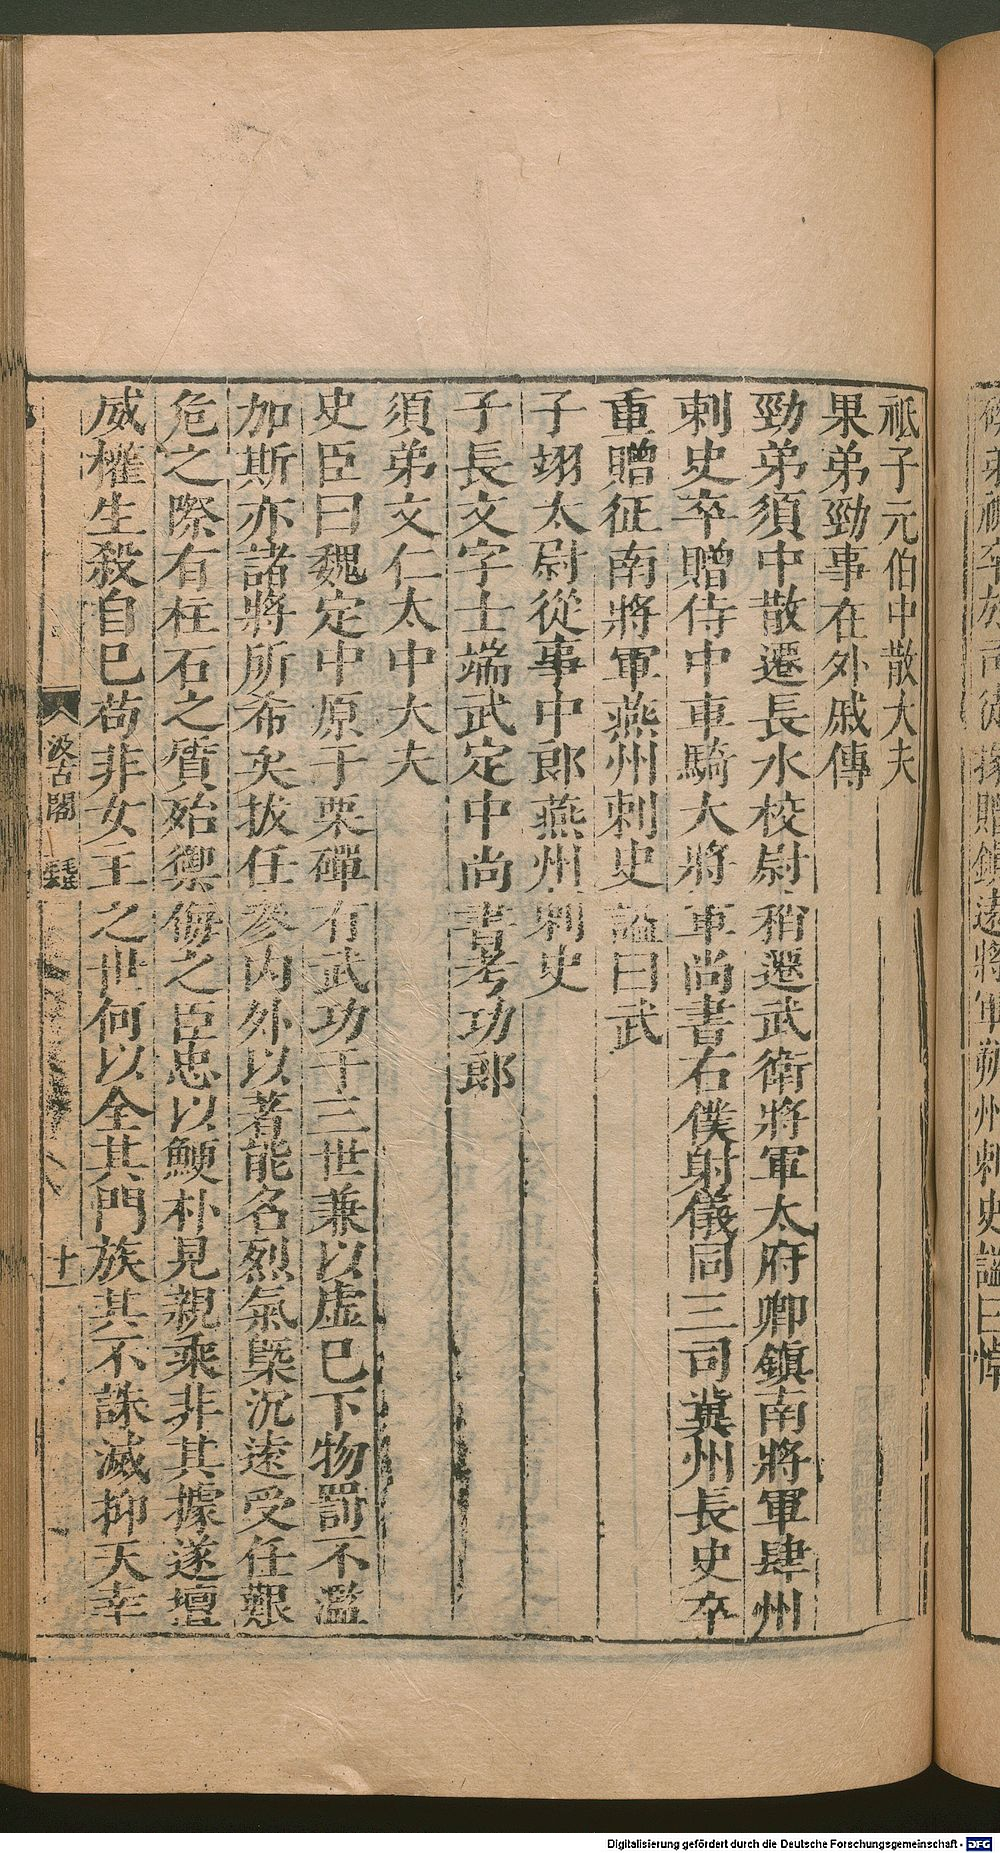 祗子元伯中散大夫
果弟勁事在外戚傳
勁弟須中散遷長水校尉稍遷武衛將軍太府卿鎮南將軍肆州
刺史卒贈侍中車騎大將軍尚書右僕射儀同三司冀州長史卒
重贈征南將軍燕州刺史謚曰武
子翊太尉從事中郎燕州刺史
子長文字士端武定中尚書考功郎
須弟文仁太中大夫
史臣曰魏定中原于栗磾有武功于三世兼以虛巳下物罰不濫
加斯亦諸將所希矣拔任參內外以著能名烈氣槩沉遠受任艱
危之際有柱石之質殆禦侮之臣忠以鯁朴見親乘非其據遂擅
威權生殺自巳苟非女主之世何以全其門族其不誅滅抑天幸
汲古閣
毛氏
十一
贈鎮遠將軍朔州刺史謚曰悼
Digitalisierung gefördert durch die Deutsche Forschungsgemeinschaft - DFG